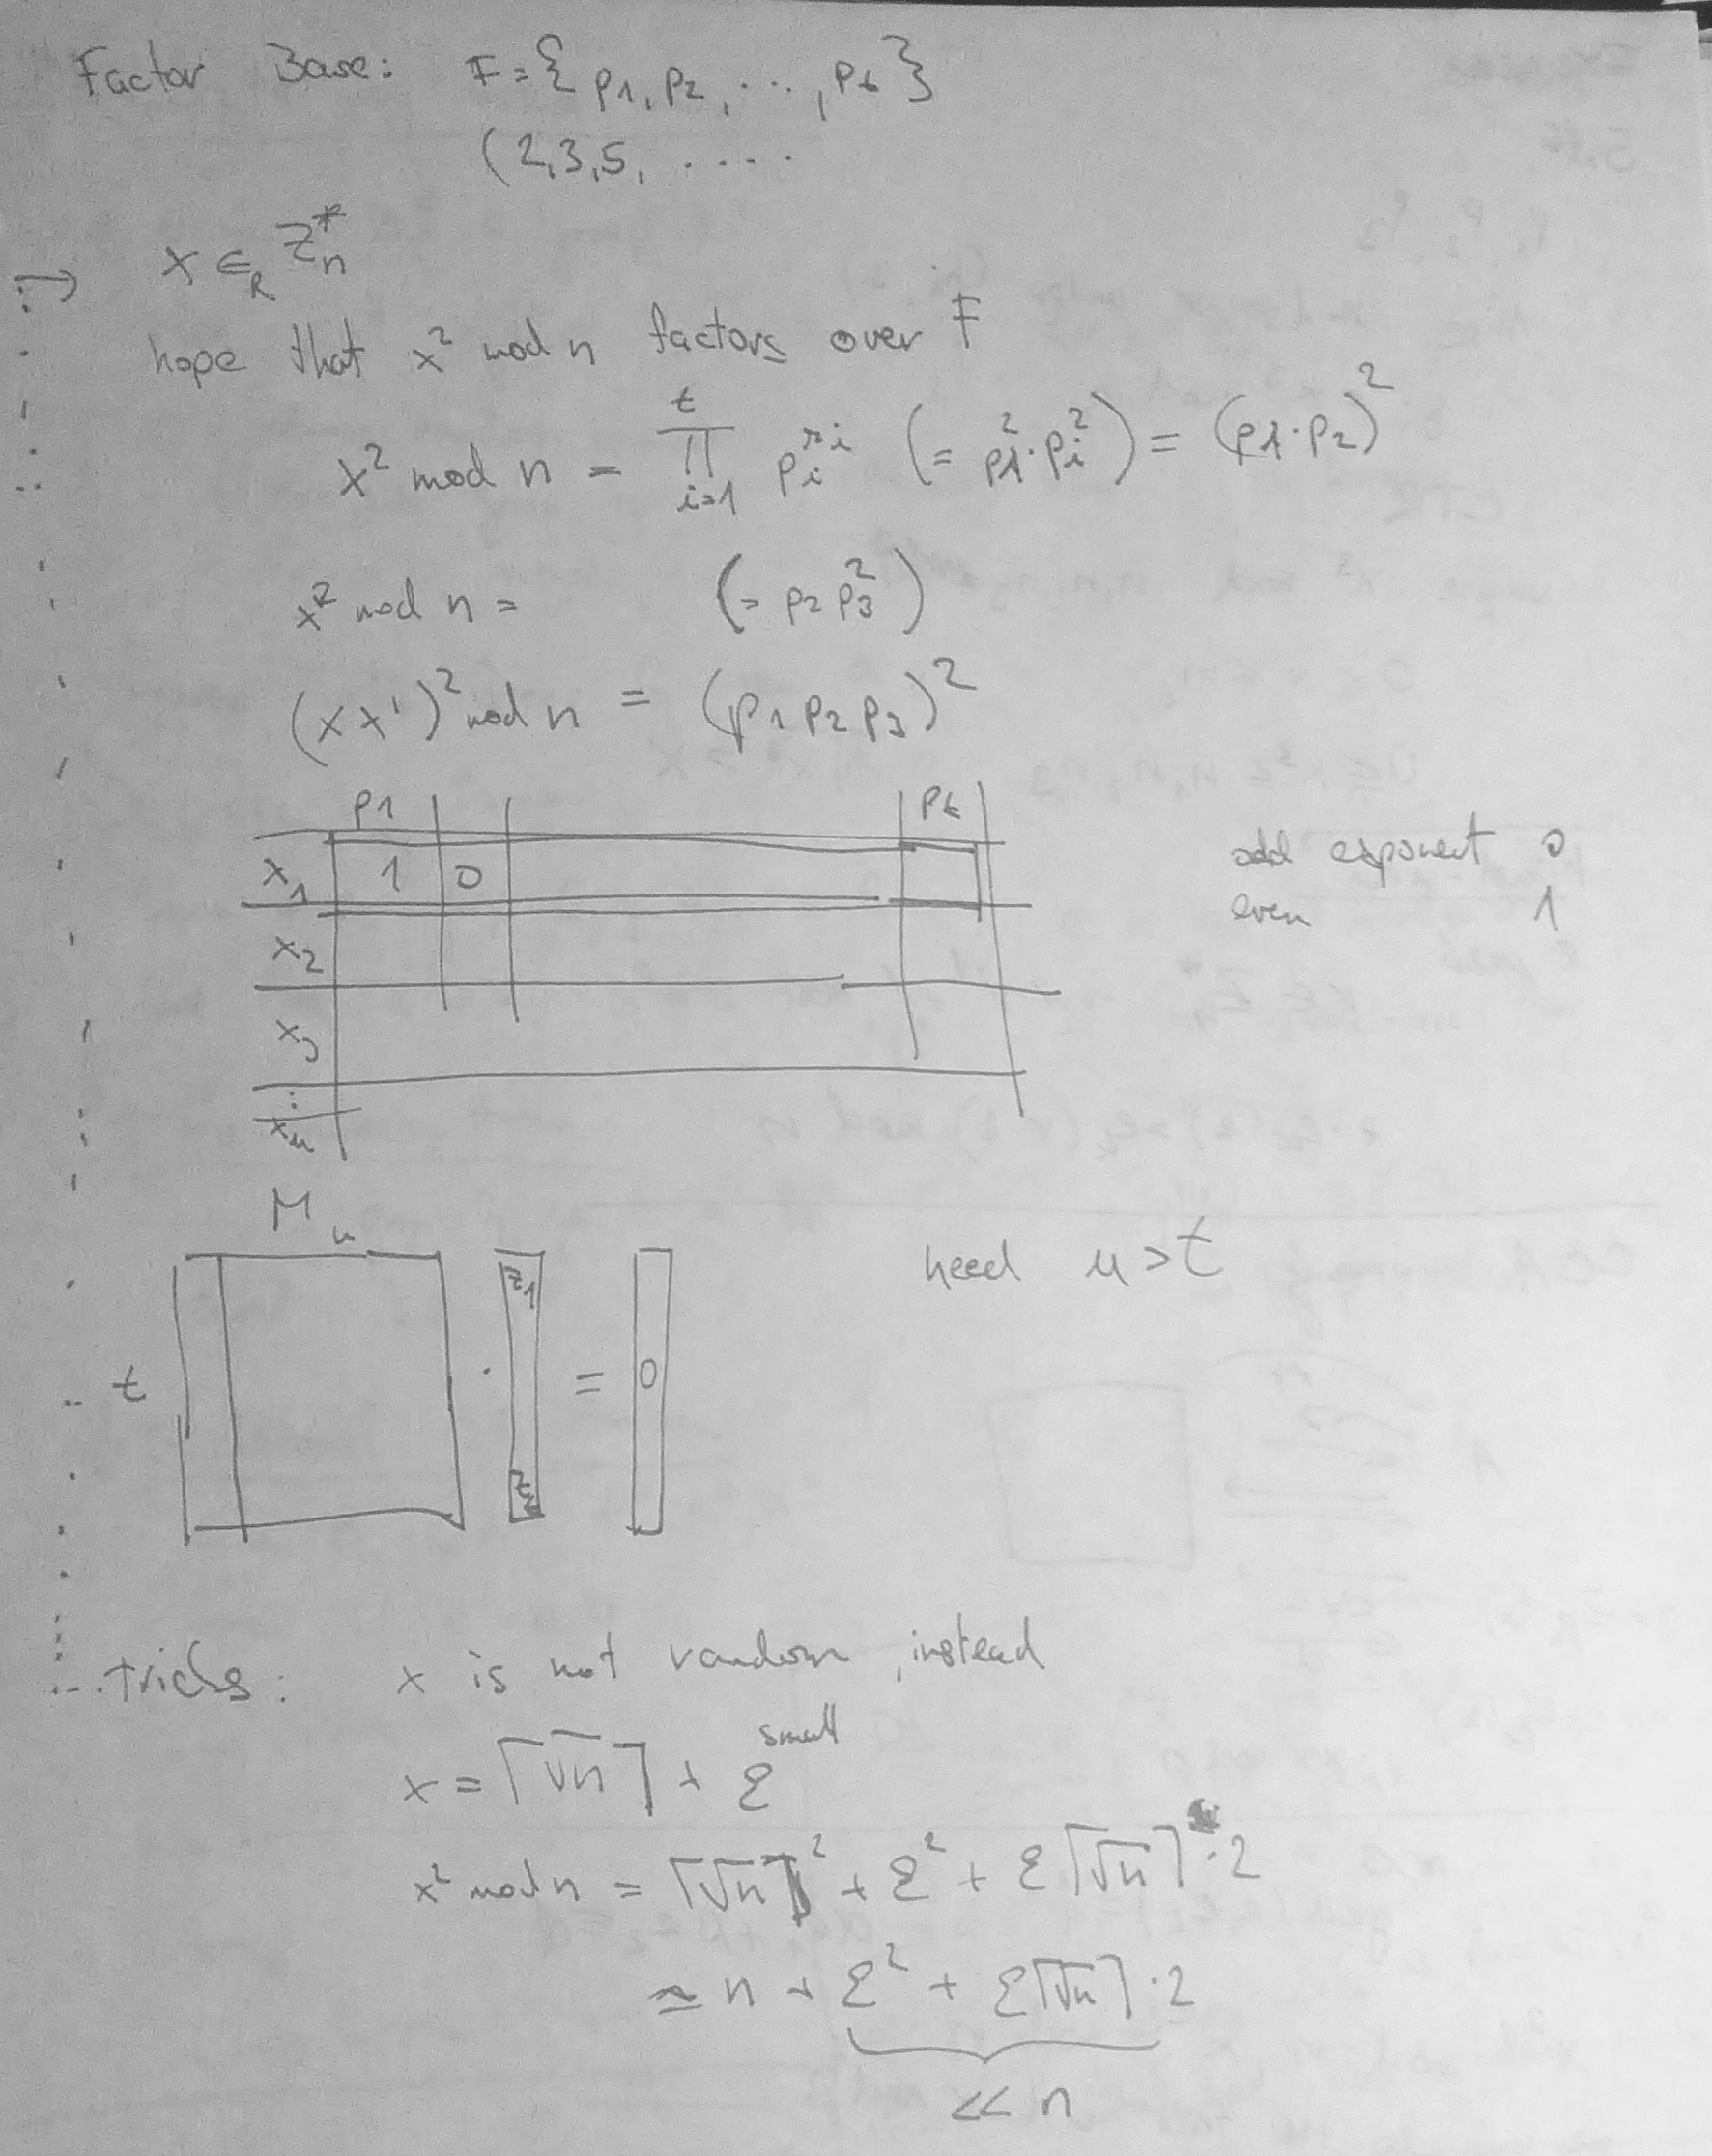 Factor Base: F = { p1, p2, ..., pt }
(2,3,5, ....
→ x ∈R Zn*
hope that x² mod n factors over F
x² mod n = ∏_{i=1}^{t} pi^{ri} (= p1²·pi²) = (p1·p2)²
x² mod n = (= p2 p3²)
(xx')² mod n = (p1 p2 p3)²
p1 pt
x1 1 0
odd exponent 0
x2
even 1
x3
⋮
xu
M u
need u > t
t · z1 = 0
tricks: x is not random, instead
x = ⌈√n⌉ + ε small
x² mod n = ⌈√n⌉² + ε² + ε⌈√n⌉·2
≃ n + ε² + ε⌈√n⌉·2
<< n